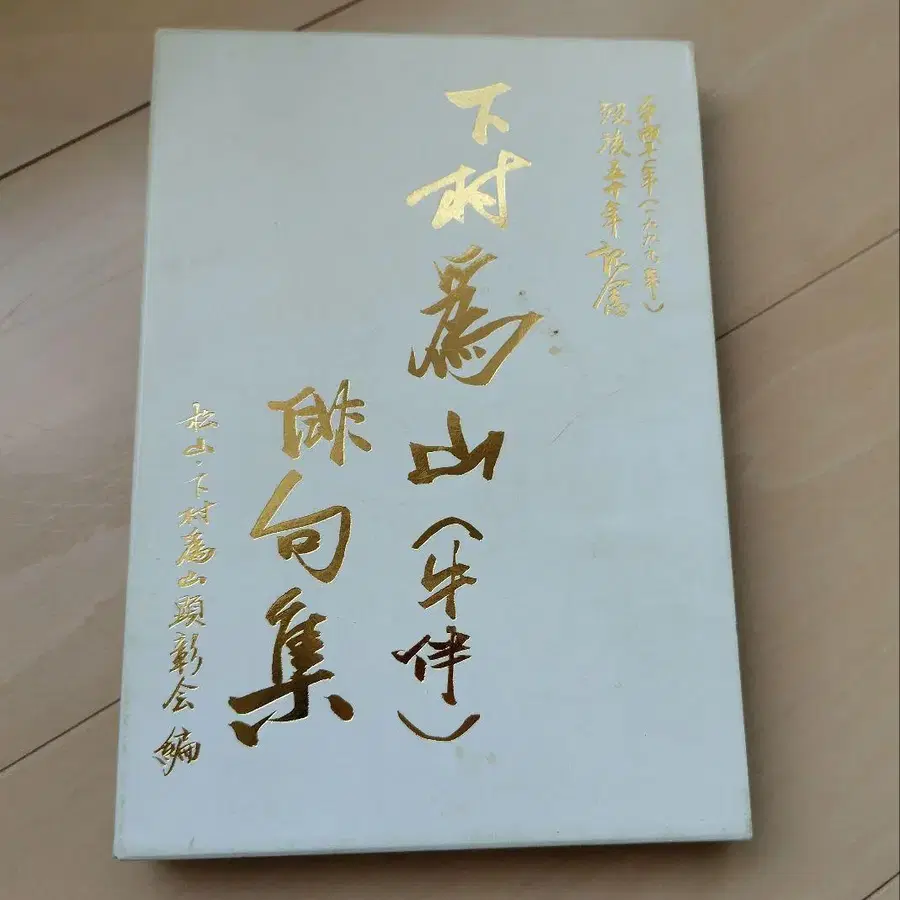 平成十一年（一九九九年）
歿後五十年記念
下村為山（牛伴）
俳句集
松山・下村為山顕彰会編